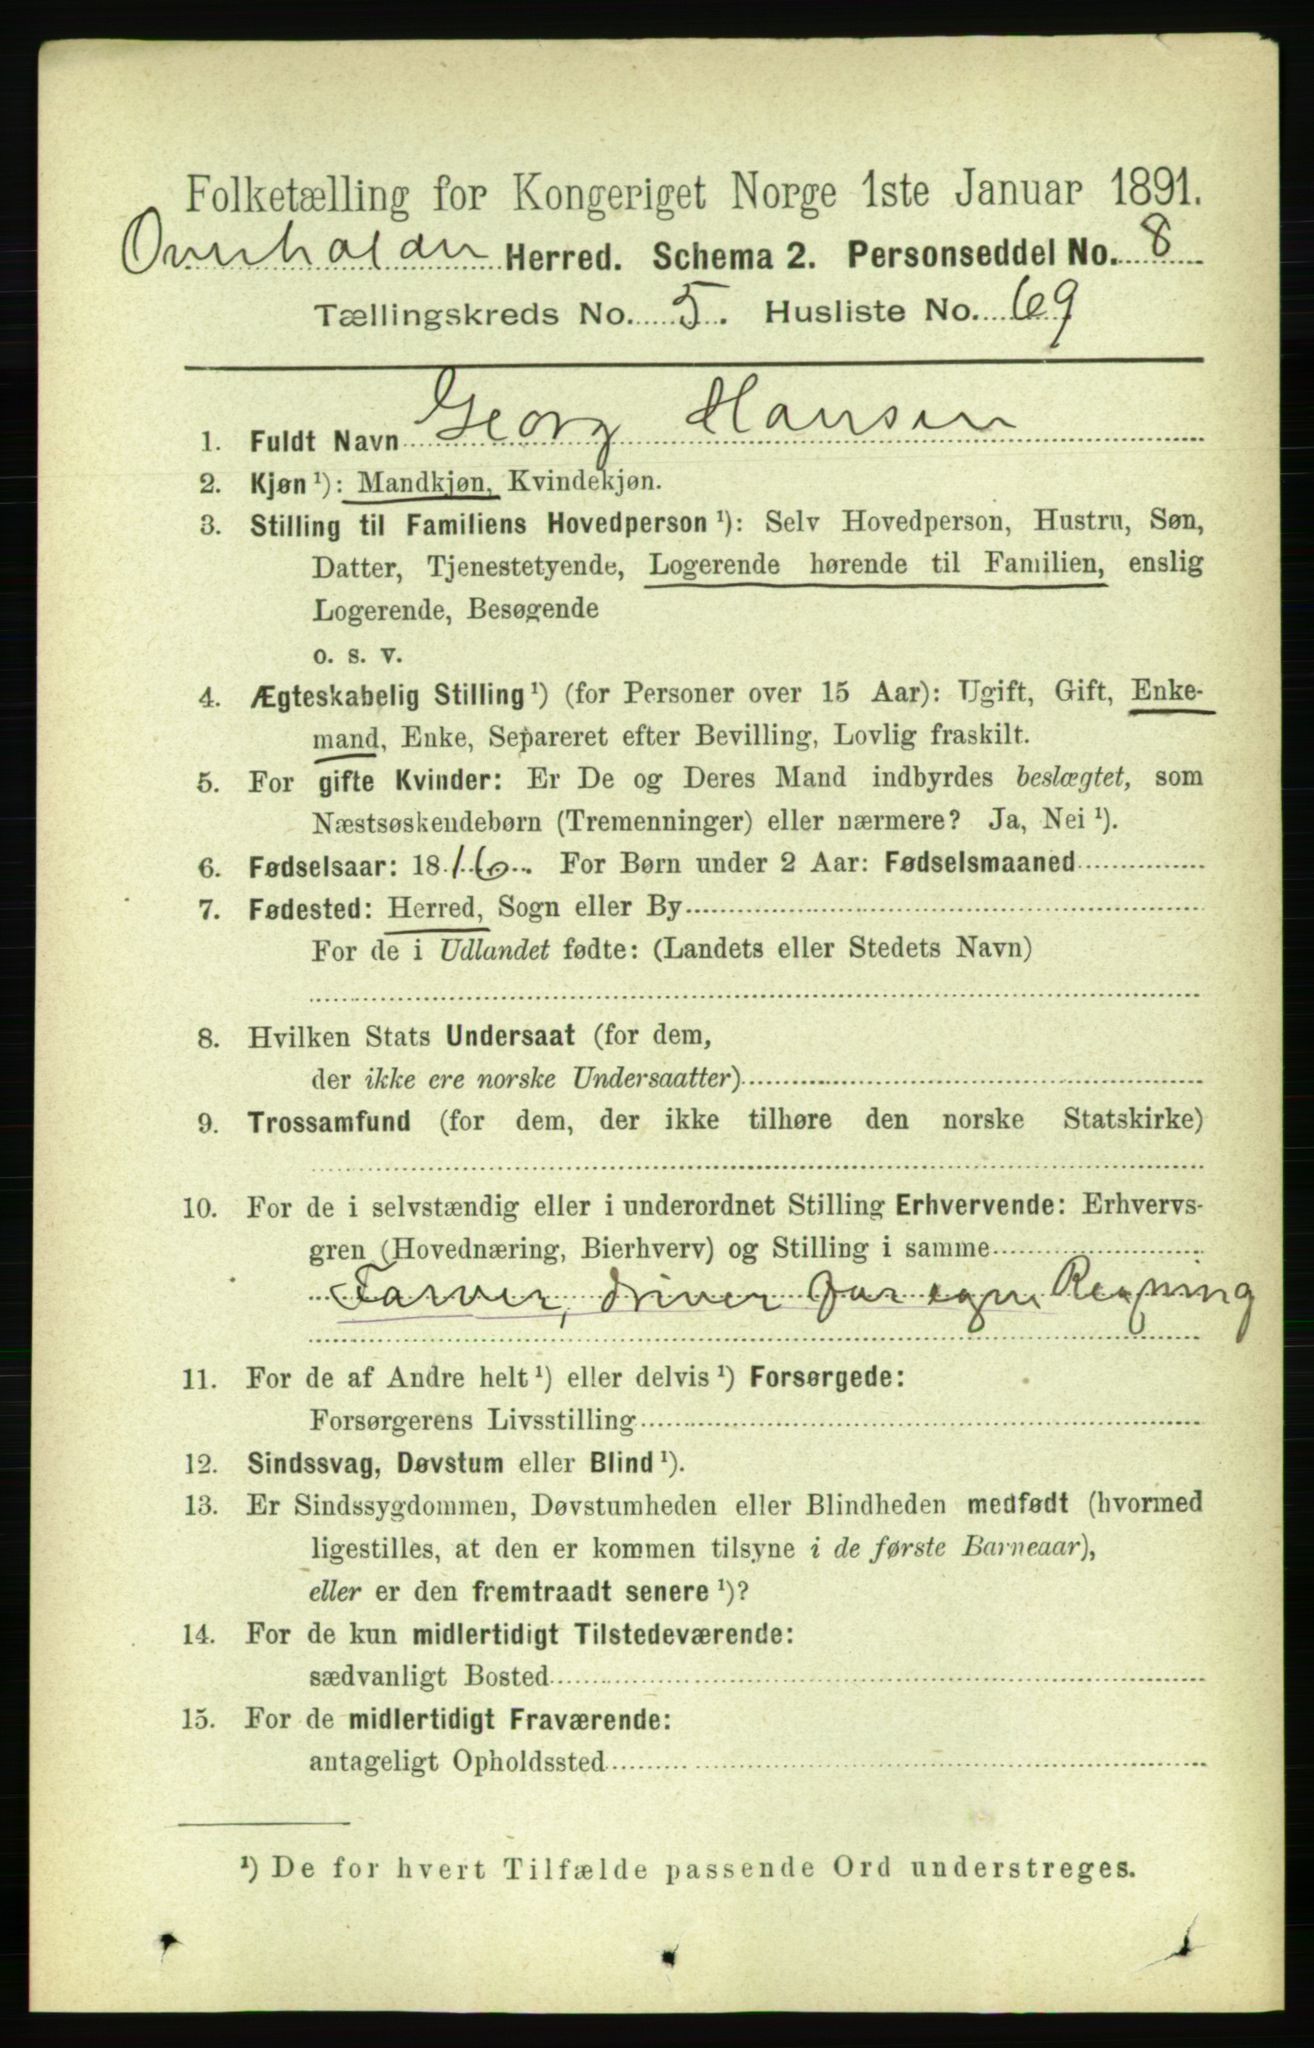 Folketælling for Kongeriget Norge 1ste Januar 1891.
Overhalden Herred. Schema 2. Personseddel No. 8
Tællingskreds No. 5. Husliste No. 69
1. Fuldt Navn Georg Hansen
2. Kjøn ¹): Mandkjøn, Kvindekjøn.
3. Stilling til Familiens Hovedperson ¹): Selv Hovedperson, Hustru, Søn,
Datter, Tjenestetyende, Logerende hørende til Familien, enslig
Logerende, Besøgende
o. s. v.
4. Ægteskabelig Stilling ¹) (for Personer over 15 Aar): Ugift, Gift, Enke-
mand, Enke, Separeret efter Bevilling, Lovlig fraskilt.
5. For gifte Kvinder: Er De og Deres Mand indbyrdes beslægtet, som
Næstsøskendebørn (Tremenninger) eller nærmere? Ja, Nei ¹).
6. Fødselsaar: 1816. For Børn under 2 Aar: Fødselsmaaned
7. Fødested: Herred, Sogn eller By
For de i Udlandet fødte: (Landets eller Stedets Navn)
8. Hvilken Stats Undersaat (for dem,
der ikke ere norske Undersaatter)
9. Trossamfund (for dem, der ikke tilhøre den norske Statskirke)
10. For de i selvstændig eller i underordnet Stilling Erhvervende: Erhvervs-
gren (Hovednæring, Bierhverv) og Stilling i samme
Farver, driver for egen Regning
11. For de af Andre helt ¹) eller delvis ¹) Forsørgede:
Forsørgerens Livsstilling
12. Sindssvag, Døvstum eller Blind ¹).
13. Er Sindssygdommen, Døvstumheden eller Blindheden medfødt (hvormed
ligestilles, at den er kommen tilsyne i de første Barneaar),
eller er den fremtraadt senere ¹)?
14. For de kun midlertidigt Tilstedeværende:
sædvanligt Bosted
15. For de midlertidigt Fraværende:
antageligt Opholdssted
¹) De for hvert Tilfælde passende Ord understreges.